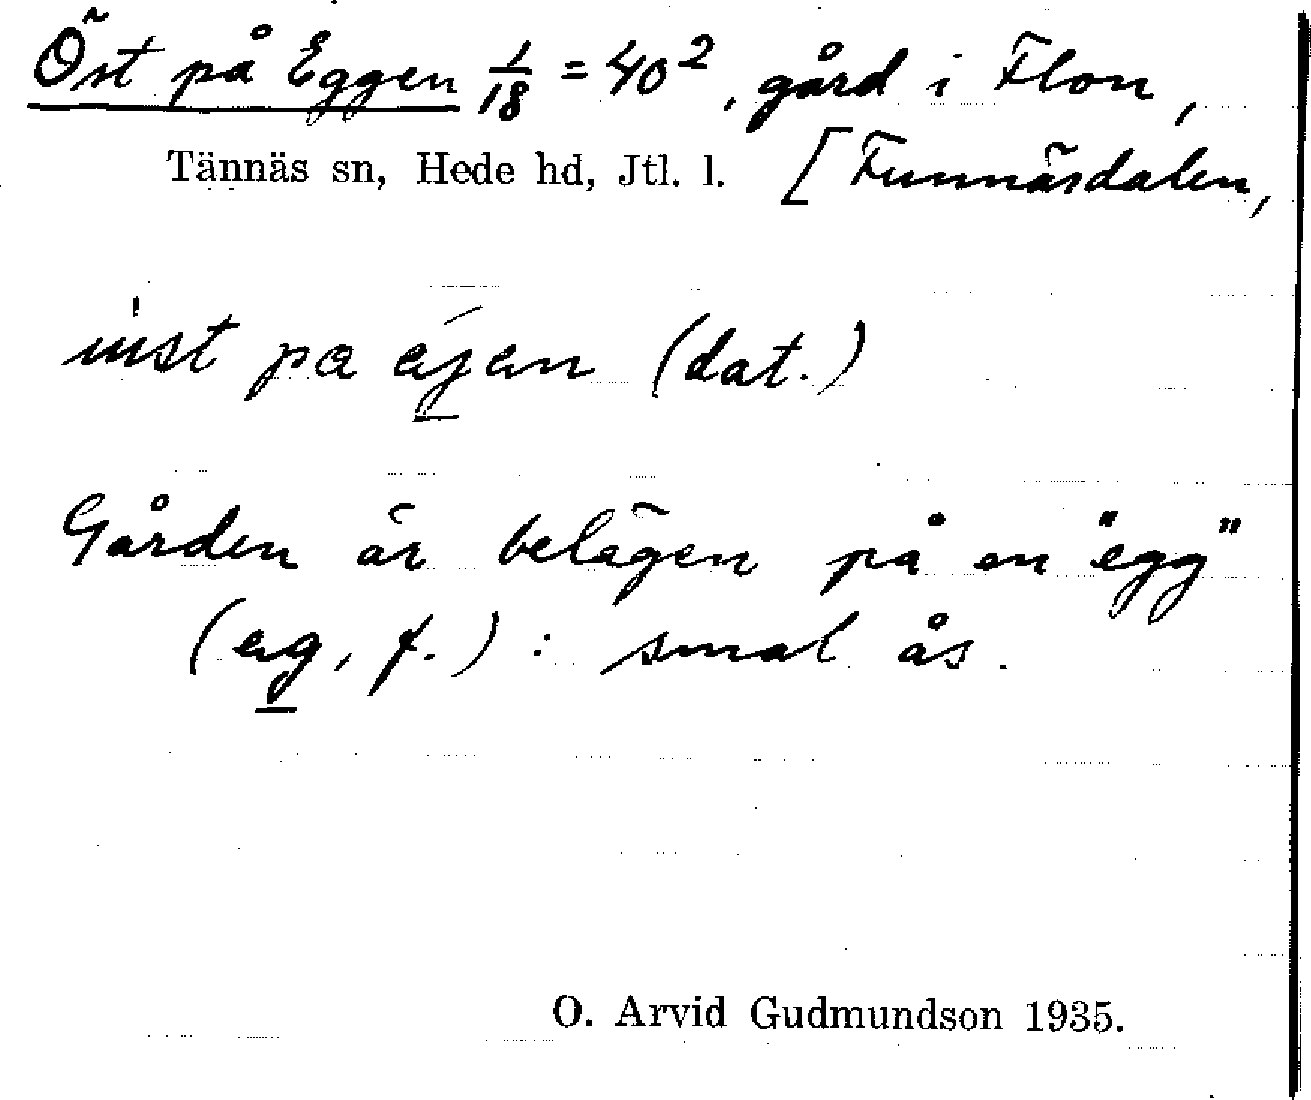 Öst på Eggen 1/18 = 40², gård i Flon,
Tännäs sn, Hede hd, Jtl. l. [Funnäsdalen,
pa (dat.)
Gården är belägen på en "egg"
(eg, f.) : smal ås.
O. Arvid Gudmundson 1935.